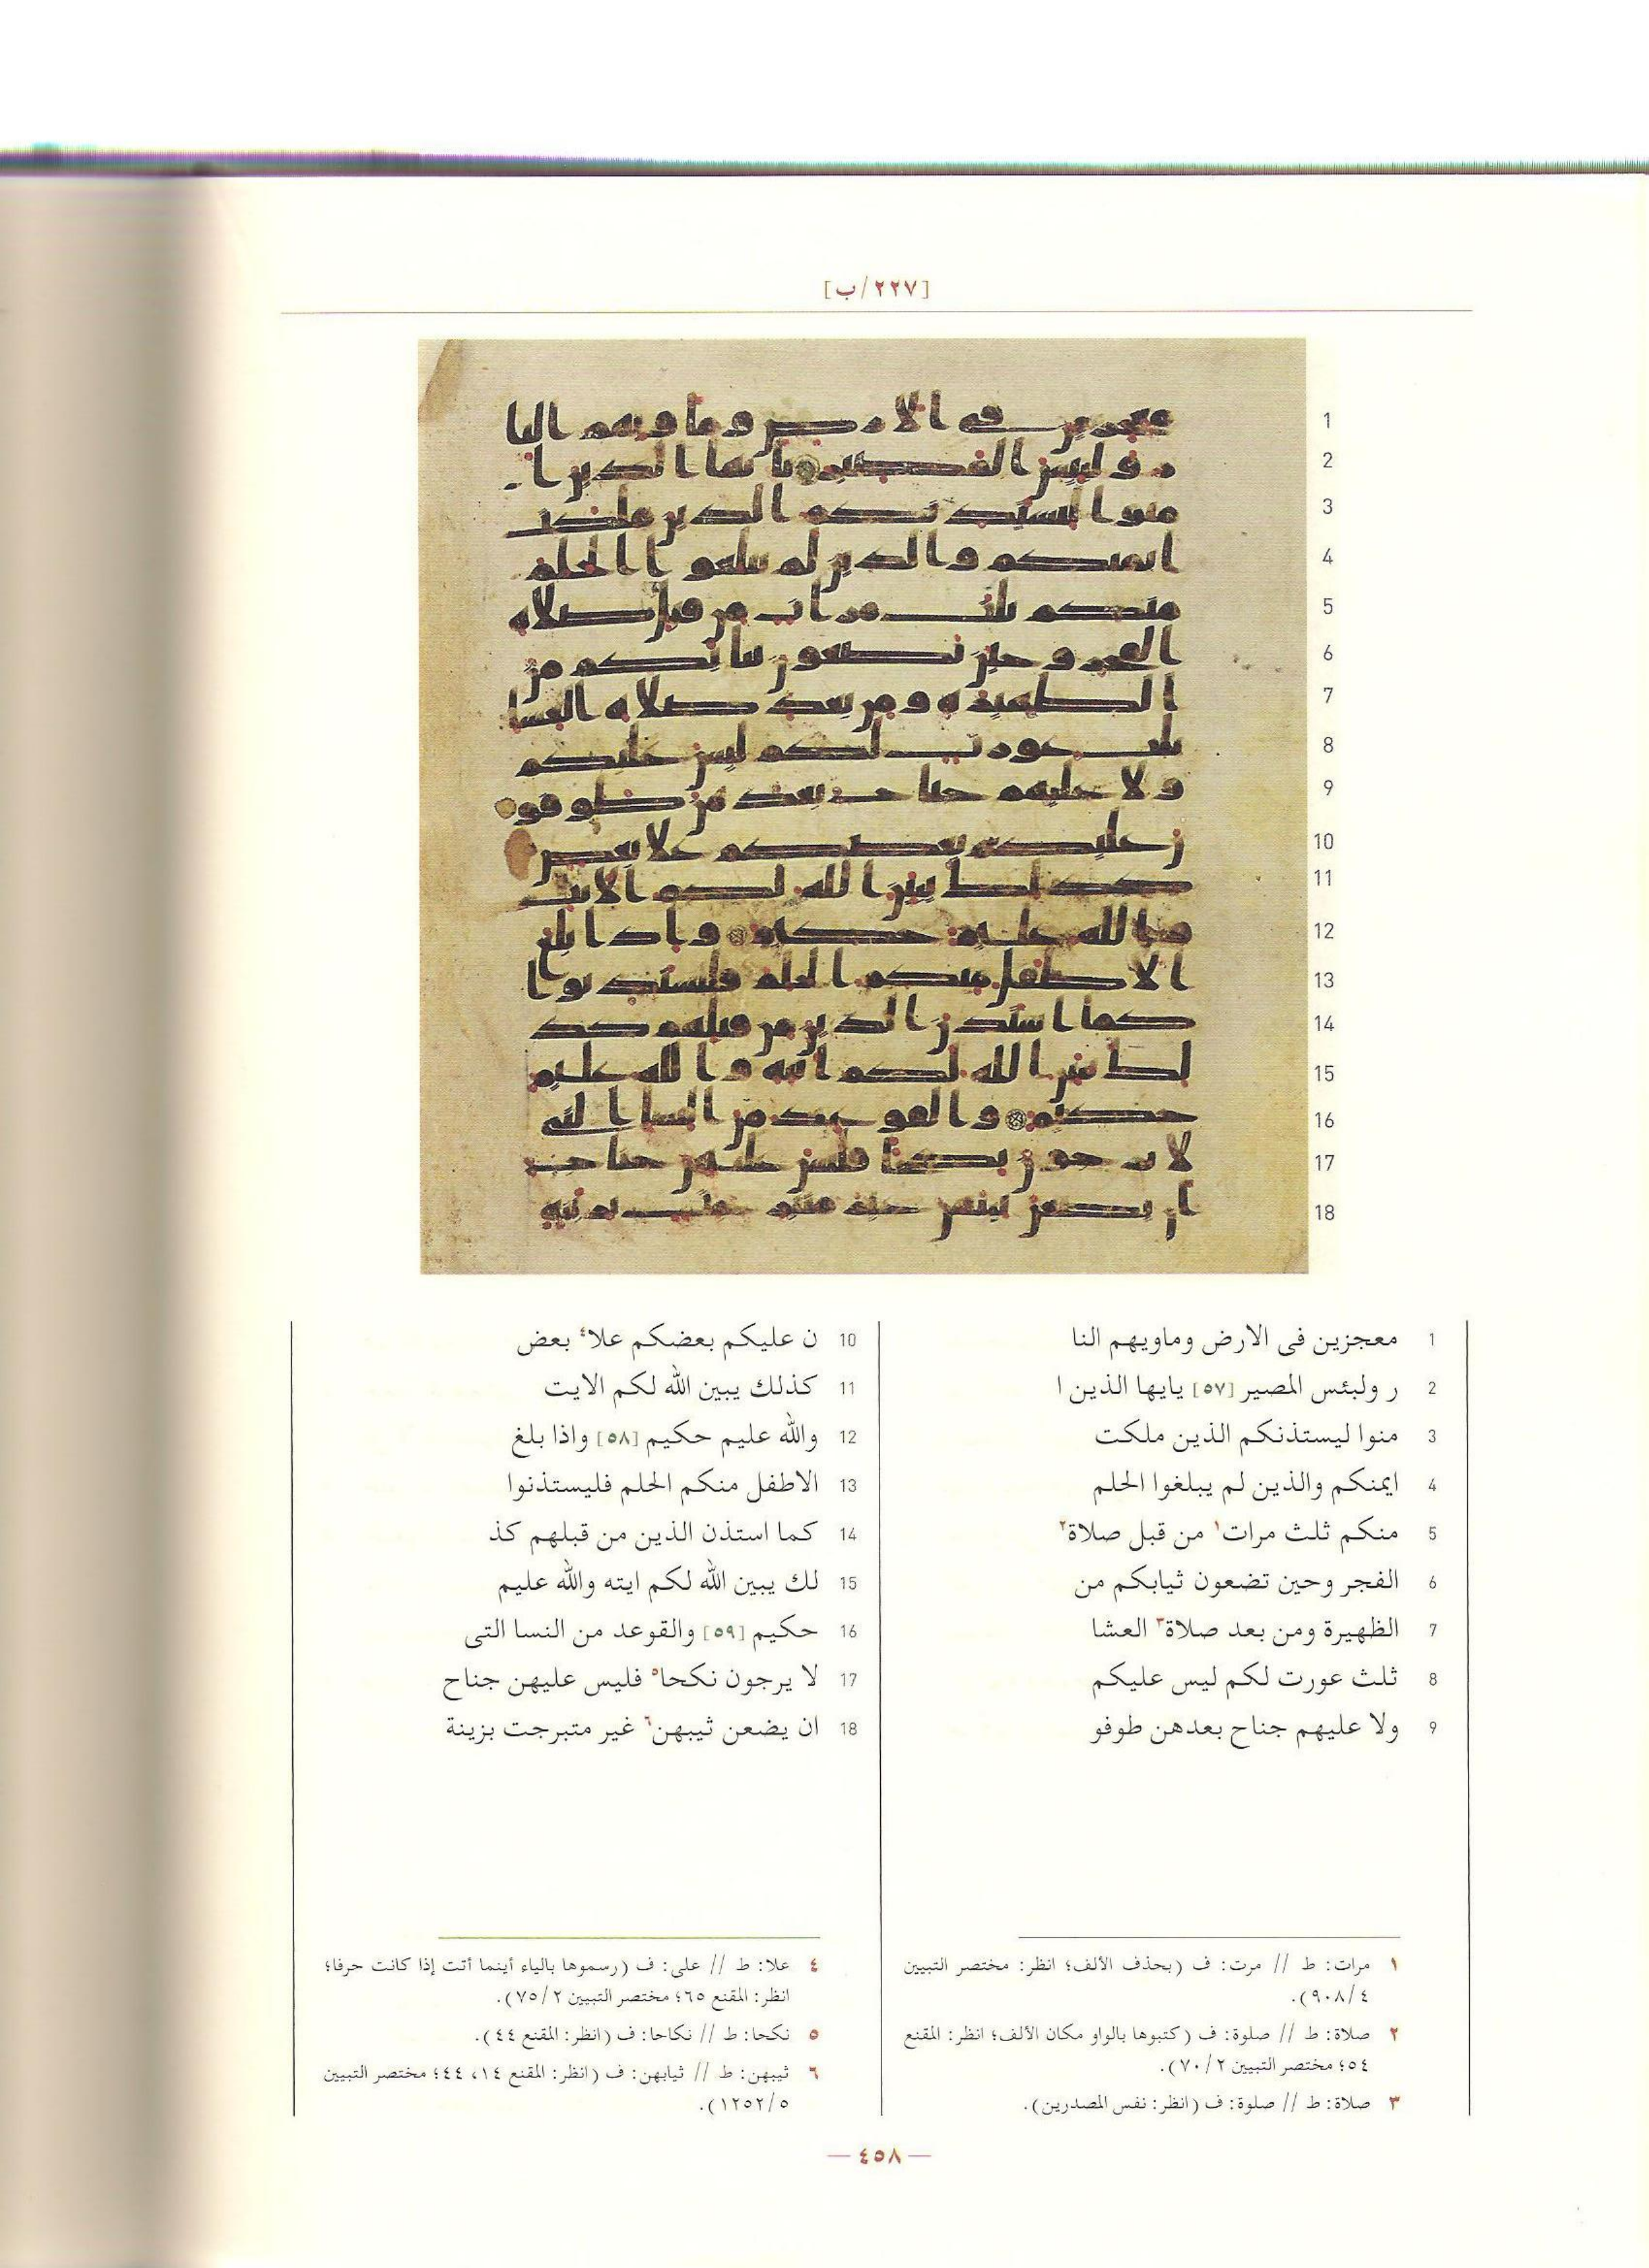 [٢٢٧/ب]
1 معجزين فى الارض وماويهم النا
2 ر ولبئس المصير [٥٧] يايها الذين ا
3 منوا ليستذنكم الذين ملكت
4 ايمنكم والذين لم يبلغوا الحلم
5 منكم ثلث مرات١ من قبل صلاة٢
6 الفجر وحين تضعون ثيابكم من
7 الظهيرة ومن بعد صلاة٣ العشا
8 ثلث عورت لكم ليس عليكم
9 ولا عليهم جناح بعدهن طوفو
10 ن عليكم بعضكم علا٤ بعض
11 كذلك يبين الله لكم الايت
12 والله عليم حكيم [٥٨] واذا بلغ
13 الاطفل منكم الحلم فليستذنوا
14 كما استذن الذين من قبلهم كذ
15 لك يبين الله لكم ايته والله عليم
16 حكيم [٥٩] والقوعد من النسا التى
17 لا يرجون نكحا٥ فليس عليهن جناح
18 ان يضعن ثيبهن٦ غير متبرجت بزينة
١ مرات: ط // مرت: ف (بحذف الألف؛ انظر: مختصر التبيين
٤/٩٠٨).
٢ صلاة: ط // صلوة: ف (كتبوها بالواو مكان الألف؛ انظر: المقنع
٥٤؛ مختصر التبيين ٢/٧٠).
٣ صلاة: ط // صلوة: ف (انظر: نفس المصدرين).
٤ علا: ط // على: ف (رسموها بالياء أينما أتت إذا كانت حرفا؛
انظر: المقنع ٦٥؛ مختصر التبيين ٢/٧٥).
٥ نكحا: ط // نكاحا: ف (انظر: المقنع ٤٤).
٦ ثيبهن: ط // ثيابهن: ف (انظر: المقنع ١٤، ٤٤؛ مختصر التبيين
٥/١٢٥٢).
— ٤٥٨ —